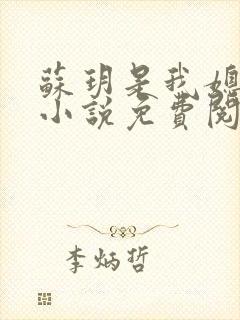 蘇玥是我媳
小說免費閱
李炳哲